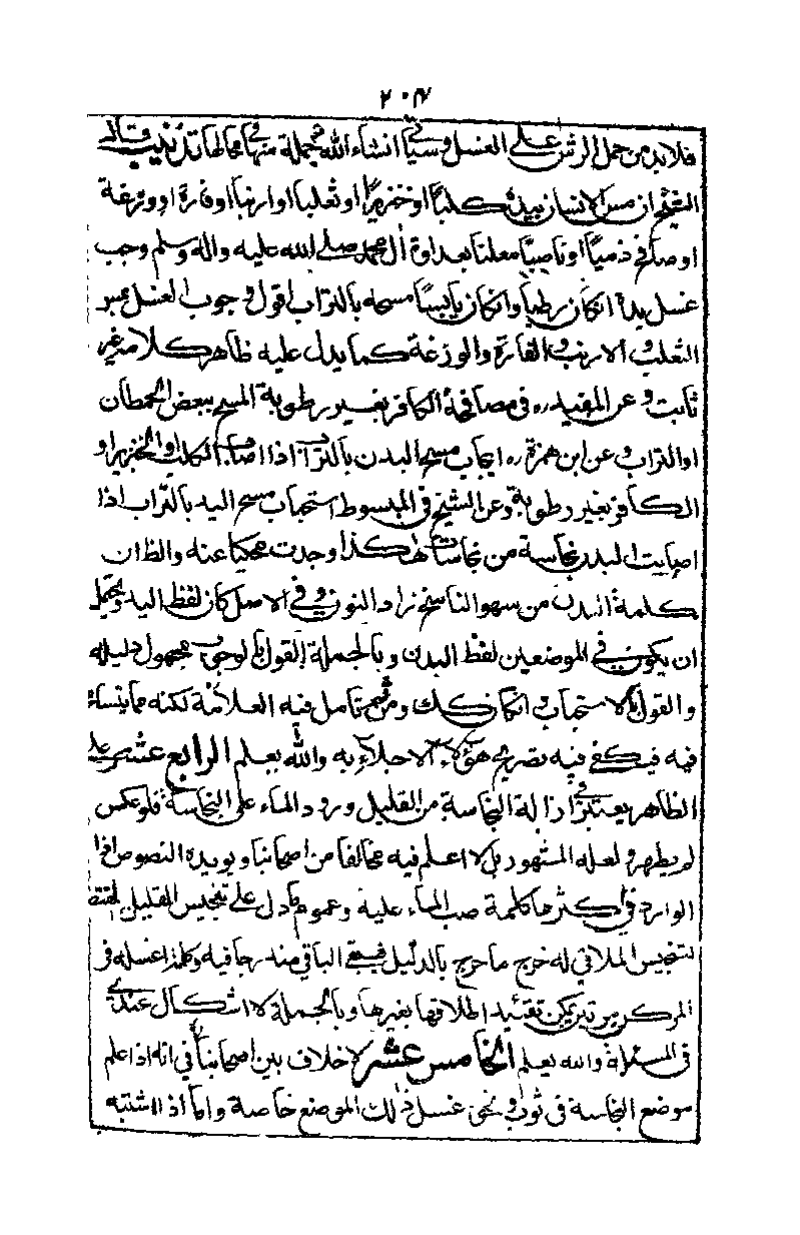 ٢٠٤
فلابد من حمل الرش على الغسل وسيأتي انشاء الله جملة منها في محالها تذنيب قال
الشيخ ان مس الانسان بيده كلبا او خنزيرا او ثعلبا او ارنبا او فارة او وزغة
او صافح ذميا او ناصبيا معلنا بعداوة آل محمد صلى الله عليه واله وسلم وجب
غسل يده انكان رطبا وانكان يابسا مسحه بالتراب اقول وجوب الغسل بمس
الثعلب و الارنب و الفارة والوزغة كما يدل عليه ظاهر كلامه غير
ثابت و عن المفيد ره في مصافحة الكافر بغير رطوبة المسح ببعض الحيطان
او التراب و عن ابن حمزة ره ايجاب مسح البدن بالتراب اذا اصابه الكلب او الخنزير او
الكافر بغير رطوبة وعن الشيخ في المبسوط استحباب مسح اليد بالتراب اذا
اصابت البدن نجاسة من نجاسات هكذا وجدت محكيا عنه والظ ان
كلمة البدن من سهو الناسخ زاد النون و في الاصل كان لفظ اليد ويحتمل
ان يكون في الموضعين لفظ البدن و بالجملة القول بالوجوب مجهول دليله
والقول بالاستحباب و انكان كك ومن ثم تامل فيه العلامة لكنه مما يتسامح
فيه فيكفي فيه تصريح هؤلاء الاجلاء به والله يعلم الرابع عشر على
الظاهر يعتبر في ازالة النجاسة من القليل ورود الماء على النجاسة فلو عكس
لم يطهر و لعله المشهور بل لا اعلم فيه مخالفا من اصحابنا و يويده النصوص اذ
الوارد في اكثرها كلمة صب الماء عليه و عموم ما دل على تنجيس القليل المقتضى
لتنجيس الملاقي له خرج ما خرج بالدليل فيبقى الباقي مندرجا فيه وكلمة اغسله في
المركن مرتين يمكن تقييد اطلاقها بغيرها وبالجملة لا اشكال عندي
في المسئلة والله يعلم الخامس عشر لا خلاف بين اصحابنا في انه اذا علم
موضع النجاسة في ثوب و نحوه غسل ذلك الموضع خاصة و اما اذا اشتبه